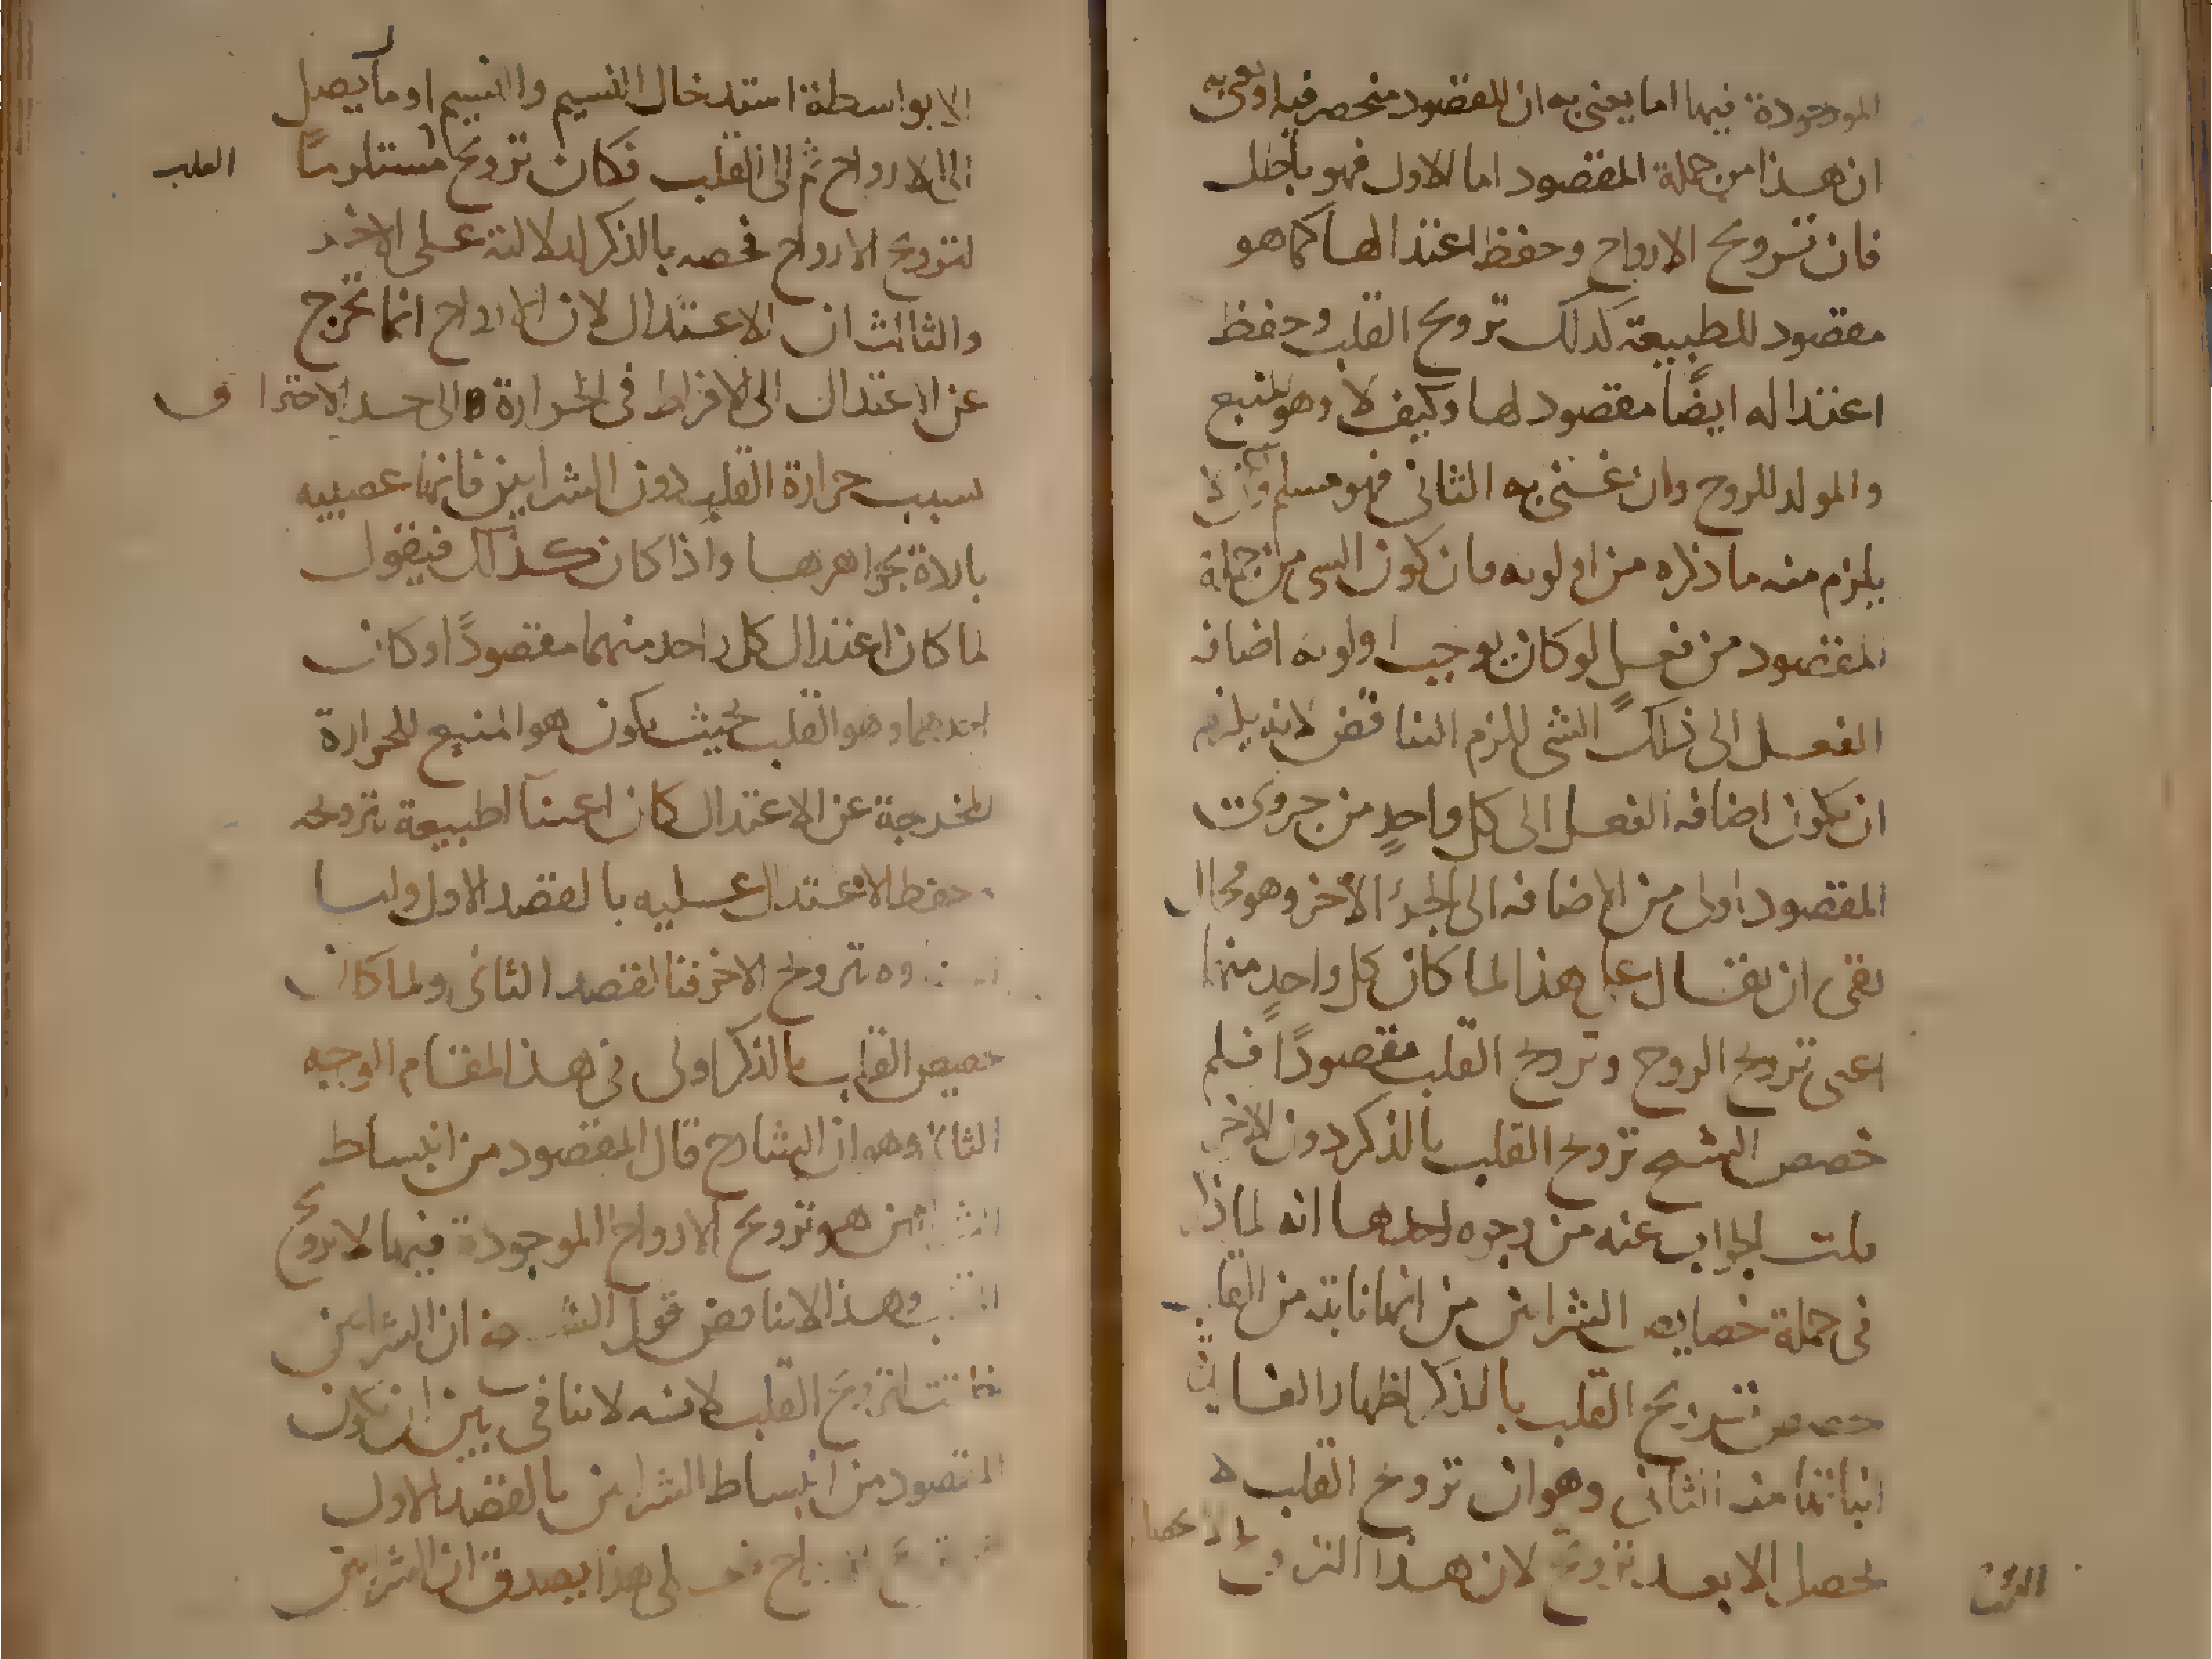 الموجودة فيها اما يعنى به ان المقصود منحصر فيه او يعنى به
ان هذا من جملة المقصود اما الاول فهو باطل
فان ترويح الارواح وحفظ اعتدالها كما هو
مقصود للطبيعة كذلك ترويح القلب وحفظ
اعتداله ايضًا مقصود لها وكيف لا وهو المنبع
والمولد للروح وان عنى به الثانى فهو مسلم
يلزم منه ما ذكره من اولويه فان كون الشى من جملة
المقصود من فعلٍ لو كان يوجب اولويه اضافه
الفعل الى ذلك الشى للزم التناقض لانه يلزم
ان يكون اضافه الفعل الى كل واحدٍ من جزوى
المقصود اولى من الاضافه الى الجزء الاخر وهو محال
بقى ان يقال على هذا لما كان كل واحدٍ منهما
اعنى ترويح الروح وترويح القلب مقصودًا فلم
خصص الشيخ ترويح القلب بالذكر دون الاخر
قلت الجواب عنه من وجوه احدها انه لما ذكر
فى جملة خصايص الشراين من انها نابته من القلب
خصص ترويح القلب بالذكر اظهارا لفايدة
انباتها منه الثانى وهو ان ترويح القلب لا
يحصل الا بعد ترويح لان هذا الترويح لا يحصل
الا بواسطة استدخال النسيم والنسيم اول ما يصل
الى الارواح ثم الى القلب فكان ترويح مستلزمًا
القلب
لترويح الارواح فخصه بالذكر لدلالته على الاخر
والثالث ان الاعتدال لان الارواح انما تخرج
عن الاعتدال الى الافراط فى الحرارة والى حد الاحتراق
سبب حرارة القلب دون الشرايين فانها عصبيه
باردة بجواهرها واذا كان كذلك فيقول
لما كان اعتدال كل واحد منهما مقصودًا وكان
احدهما وهو القلب بحيث يكون هو المنبع للحرارة
المخرجة عن الاعتدال كان اعتنا الطبيعة بترويحه
وحفظ الاعتدال عليه بالقصد الاول واما
ترويح الاخر فبالقصد الثانى ولما كان
تخصيص القلب بالذكر اولى فى هذا المقام الوجه
الثانى وهو ان الشارح قال المقصود من انبساط
الشراين هو ترويح الارواح الموجودة فيها لا ترويح
القلب وهذا لا يناقض قول الشيخ ان الشراين
خلقت لترويح القلب لانه لا ينافى بين ان يكون
المقصود من انبساط الشراين بالقصد الاول
ترويح الارواح هذا يصدق ان الشراين